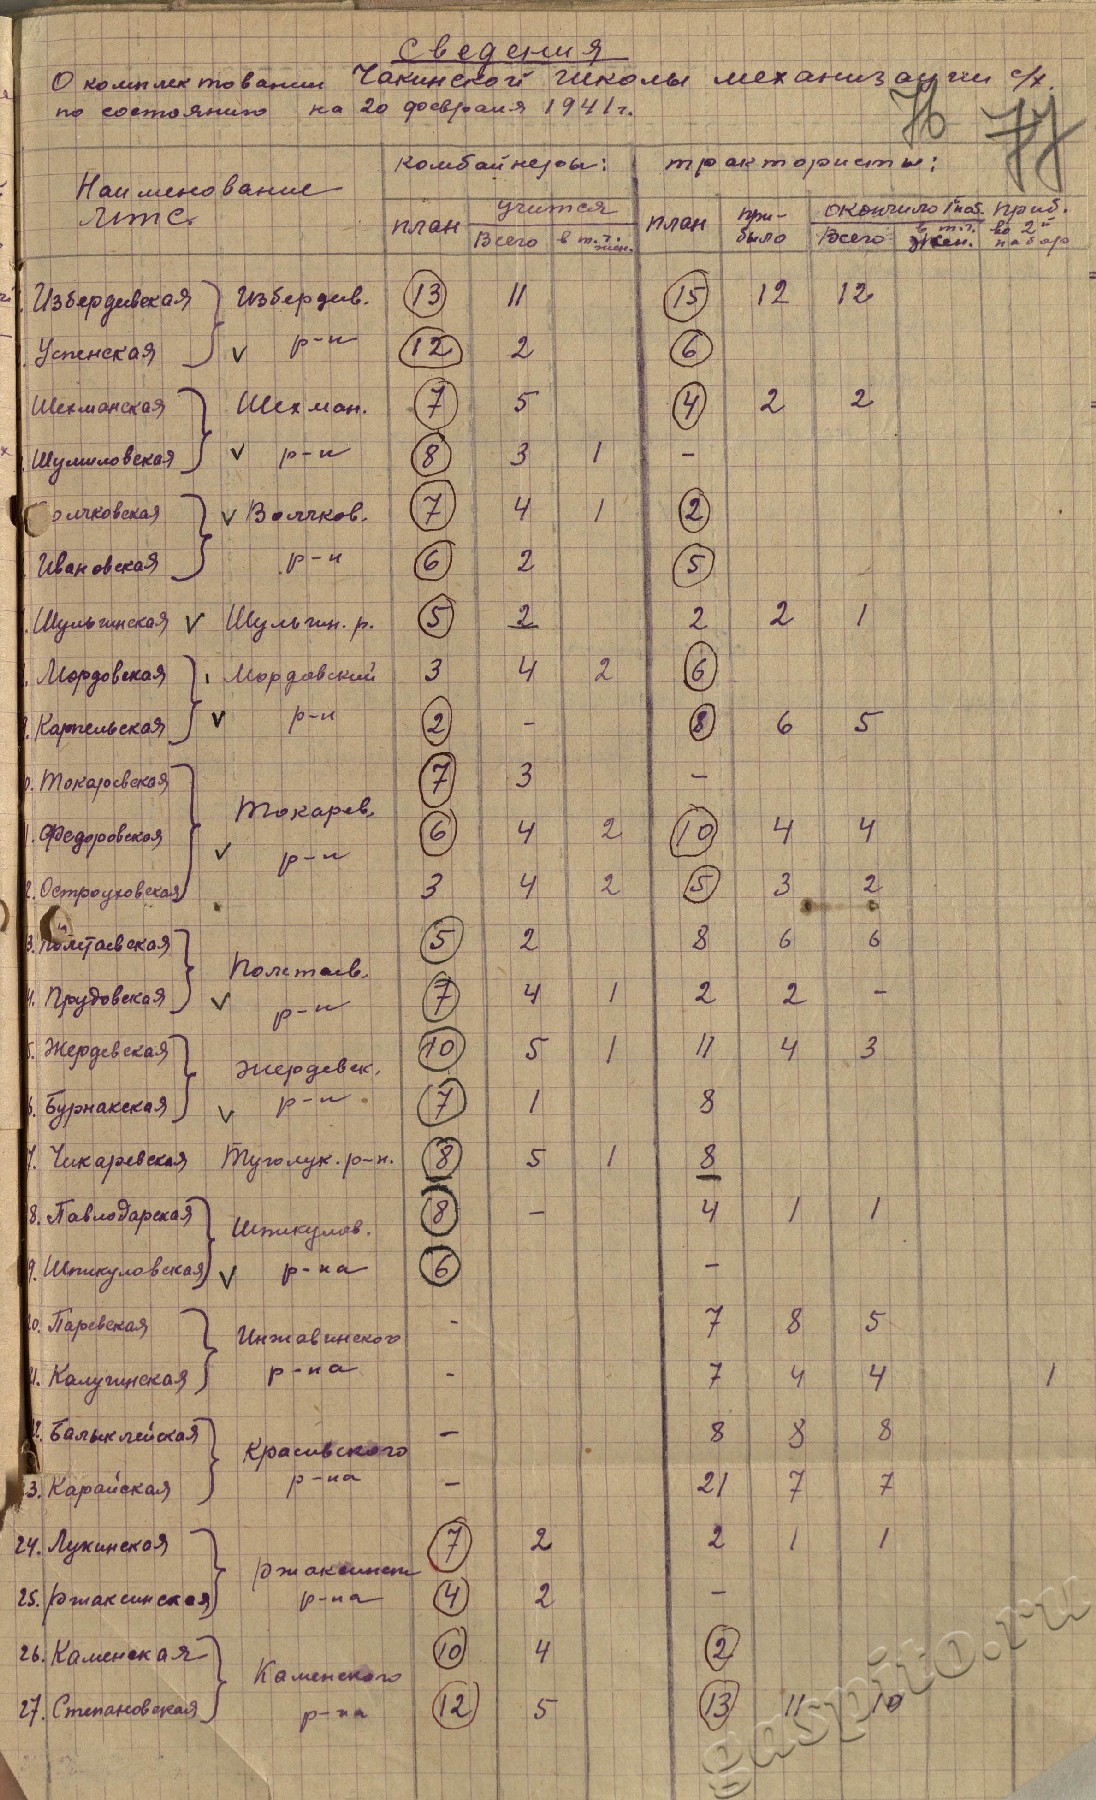 Сведения
О комплектовании Чакинской школы механизации с/х.
по состоянию на 20 февраля 1941 г.
76 77
Наименование МТС.
комбайнеры: трактористы:
план учится план при-было окончило I наб. приб. во 2й набор
Всего в т.ч. жен. Всего в т.ч. жен.
Избердеевская Избердеев. 13 11 15 12 12
Успенская v р-н 12 2 6
Шехманская Шехман. 7 5 4 2 2
Шумиловская v р-н 8 3 1 -
олчковская v Волчков. 7 4 1 2
Ивановская р-н 6 2 5
Шульгинская v Шульгин. р. 5 2 2 2 1
Мордовская Мордовский 3 4 2 6
9. Карпельская v р-н 2 - 8 6 5
0. Токаревская 7 3 -
Токарев.
1. Федоровская v р-н 6 4 2 10 4 4
2. Остроуховская 3 4 2 5 3 2
3. Полетаевская 5 2 8 6 6
Полетаев.
4. Прудовская v р-н 7 4 1 2 2 -
5. Жердевская 10 5 1 11 4 3
Жердевск.
6. Бурнакская v р-н 7 1 8
7. Чикаревская Туголук. р-н. 8 5 1 8
8. Павлодарская 8 - 4 1 1
Шпикулов.
9. Шпикуловская v р-на 6 -
20. Паревская - 7 8 5
Инжавинского
21. Калугинская р-на - 7 4 4 1
22. Балыклейская - 8 8 8
Красивского
23. Карайская р-на - 21 7 7
24. Лукинская 7 2 2 1 1
Ржаксинск
25. Ржаксинская р-на 4 2 -
26. Каменская 10 4 2
Каменского
27. Степановская р-на 12 5 13 11 10
gaspito.ru